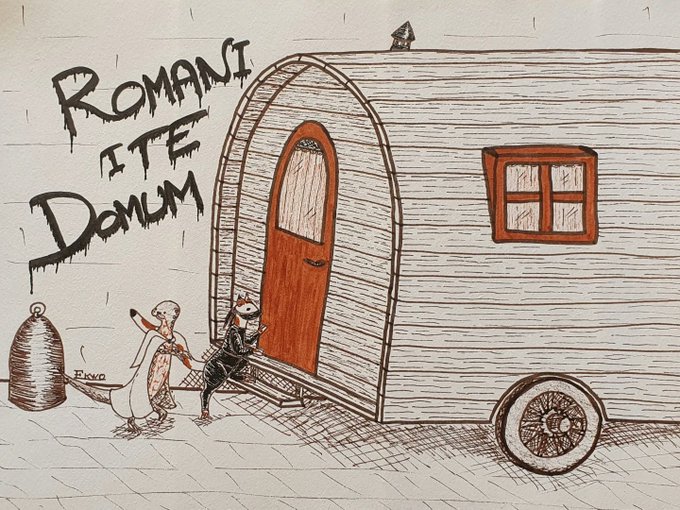 ROMANI
ITE
DOMUM
EKWO